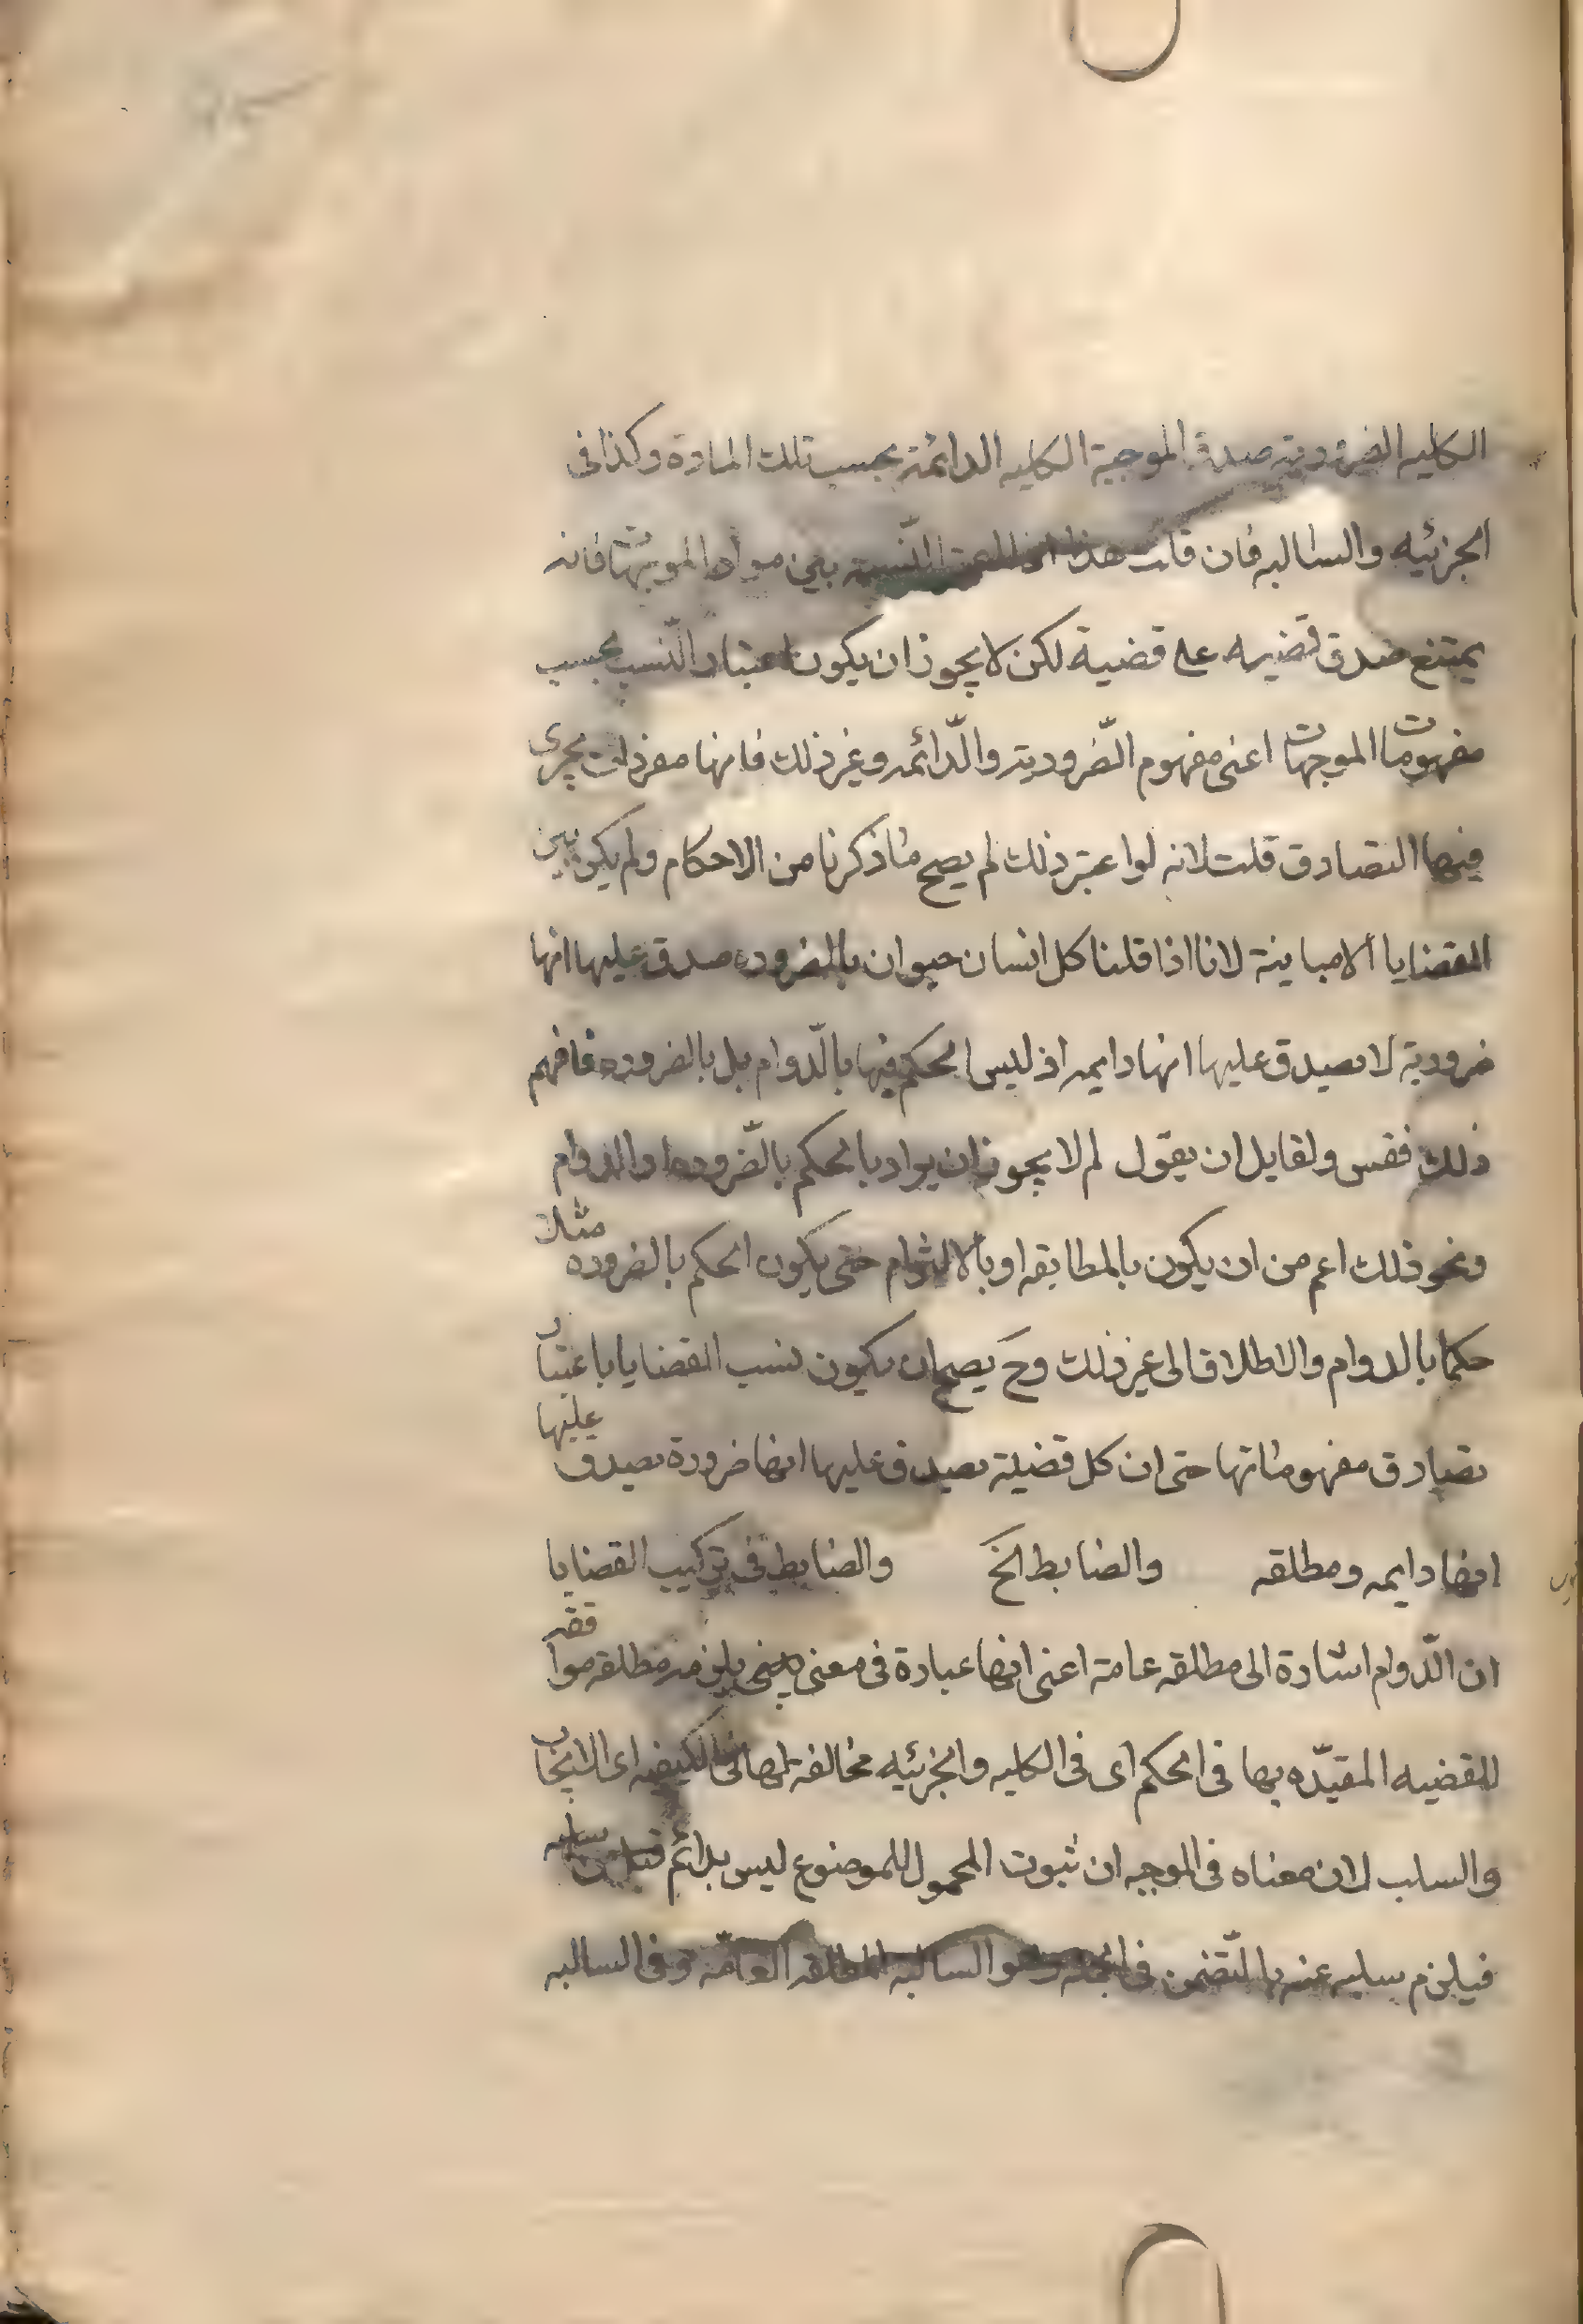 الكليه الضروريته صدق الموجبة الكليه الدائمه بحسب تلك المادة وكذا في
الجزئيه والسالبه فان قلت هذا النسبة بين مواد الموجهات فانه
يمتنع صدق قضيه على قضية لكن لا يجوز ان يكون اعتبار النّسب بحسب
مفهومات الموجهات اعنى مفهوم الضّروريته والدّائمه وغير ذلك فانها مفردات يجرى
فيها التصادق قلت لانه لو اعتبر ذلك لم يصح ما ذكرنا من الاحكام ولم يكن بين
القضايا الا مباينة لانا اذا قلنا كل انسان حيوان بالضروره صدق عليها انها
ضرورية لا يصدق عليها انها دايمه اذ ليس الحكم فيها بالدّوام بل بالضروره فافهم
ذلك فقس ولقايل ان يقول لم لا يجوز ان يراد بالحكم بالضّروره او الدوام
ونحو ذلك اعم من ان يكون بالمطابقه او بالالتزام حتى يكون الحكم بالضروره مثلا
حكما بالدوام والاطلاق الى غير ذلك وح يصح ان يكون نسب القضايا باعتبار
تصادق مفهوماتها حتى ان كل قضية يصدق عليها انها ضرورة يصدق عليها
انها دايمه ومطلقه والضابط الخ والضابط فى تركيب القضايا
ان الدّوام اشارة الى مطلقه عامة اعنى انها عبارة فى معنى يلزمه مطلقه موافقه
للقضيه المقيّده بها فى الحكم اى فى الكليه والجزئيه مخالفة لها فى الكيفيه اى الايجاب
والسلب لان معناه فى الموجبه ان ثبوت المحمول للموضوع ليس بدائم
فيلزم سلبه عنه بالتّضمن فى الجملة وهو السالبه المطلقه العامّه وفى السالبه